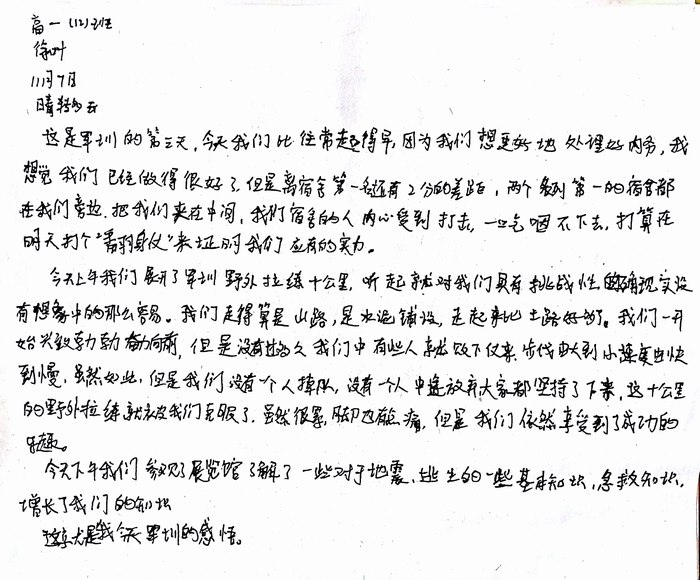 高一(12)班
徐叶
11月7日
晴转多云
这是军训的第三天,今天我们比往常起得早,因为我们想更好地处理好内务,我
想觉我们已经做得很好了但是离宿舍第一名还有2分的差距,两个拿到第一的宿舍都
在我们旁边,把我们夹在中间,我们宿舍的人内心受到打击,一口气咽不下去,打算在
明天打个“翻身仗”来证明我们应有的实力。
今天上午我们展开了军训野外拉练十公里,听起就对我们具有挑战性,的确现实没
有想象中的那么容易。我们走得算是山路,是水泥铺设,走起来比土路好多了。我们一开
始兴致勃勃奋力向前,但是没有过多久我们中有些人就败下仗来,步伐由大到小速度由快
到慢,虽然如此,但是我们没有一个人掉队,没有一个人中途放弃大家都坚持了下来,这十公里
的野外拉练就被我们克服了,虽然很累,脚也有点痛,但是我们依然享受到了成功的
乐趣。
今天下午我们参观了展览馆了解了一些对于地震、逃生的一些基本知识,急救知识,
增长了我们的知识
这就是我今天军训的感悟。